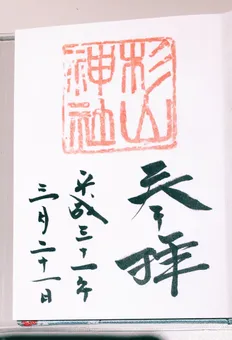 杉山
神社
奉拝
平成三十一年
三月二十一日